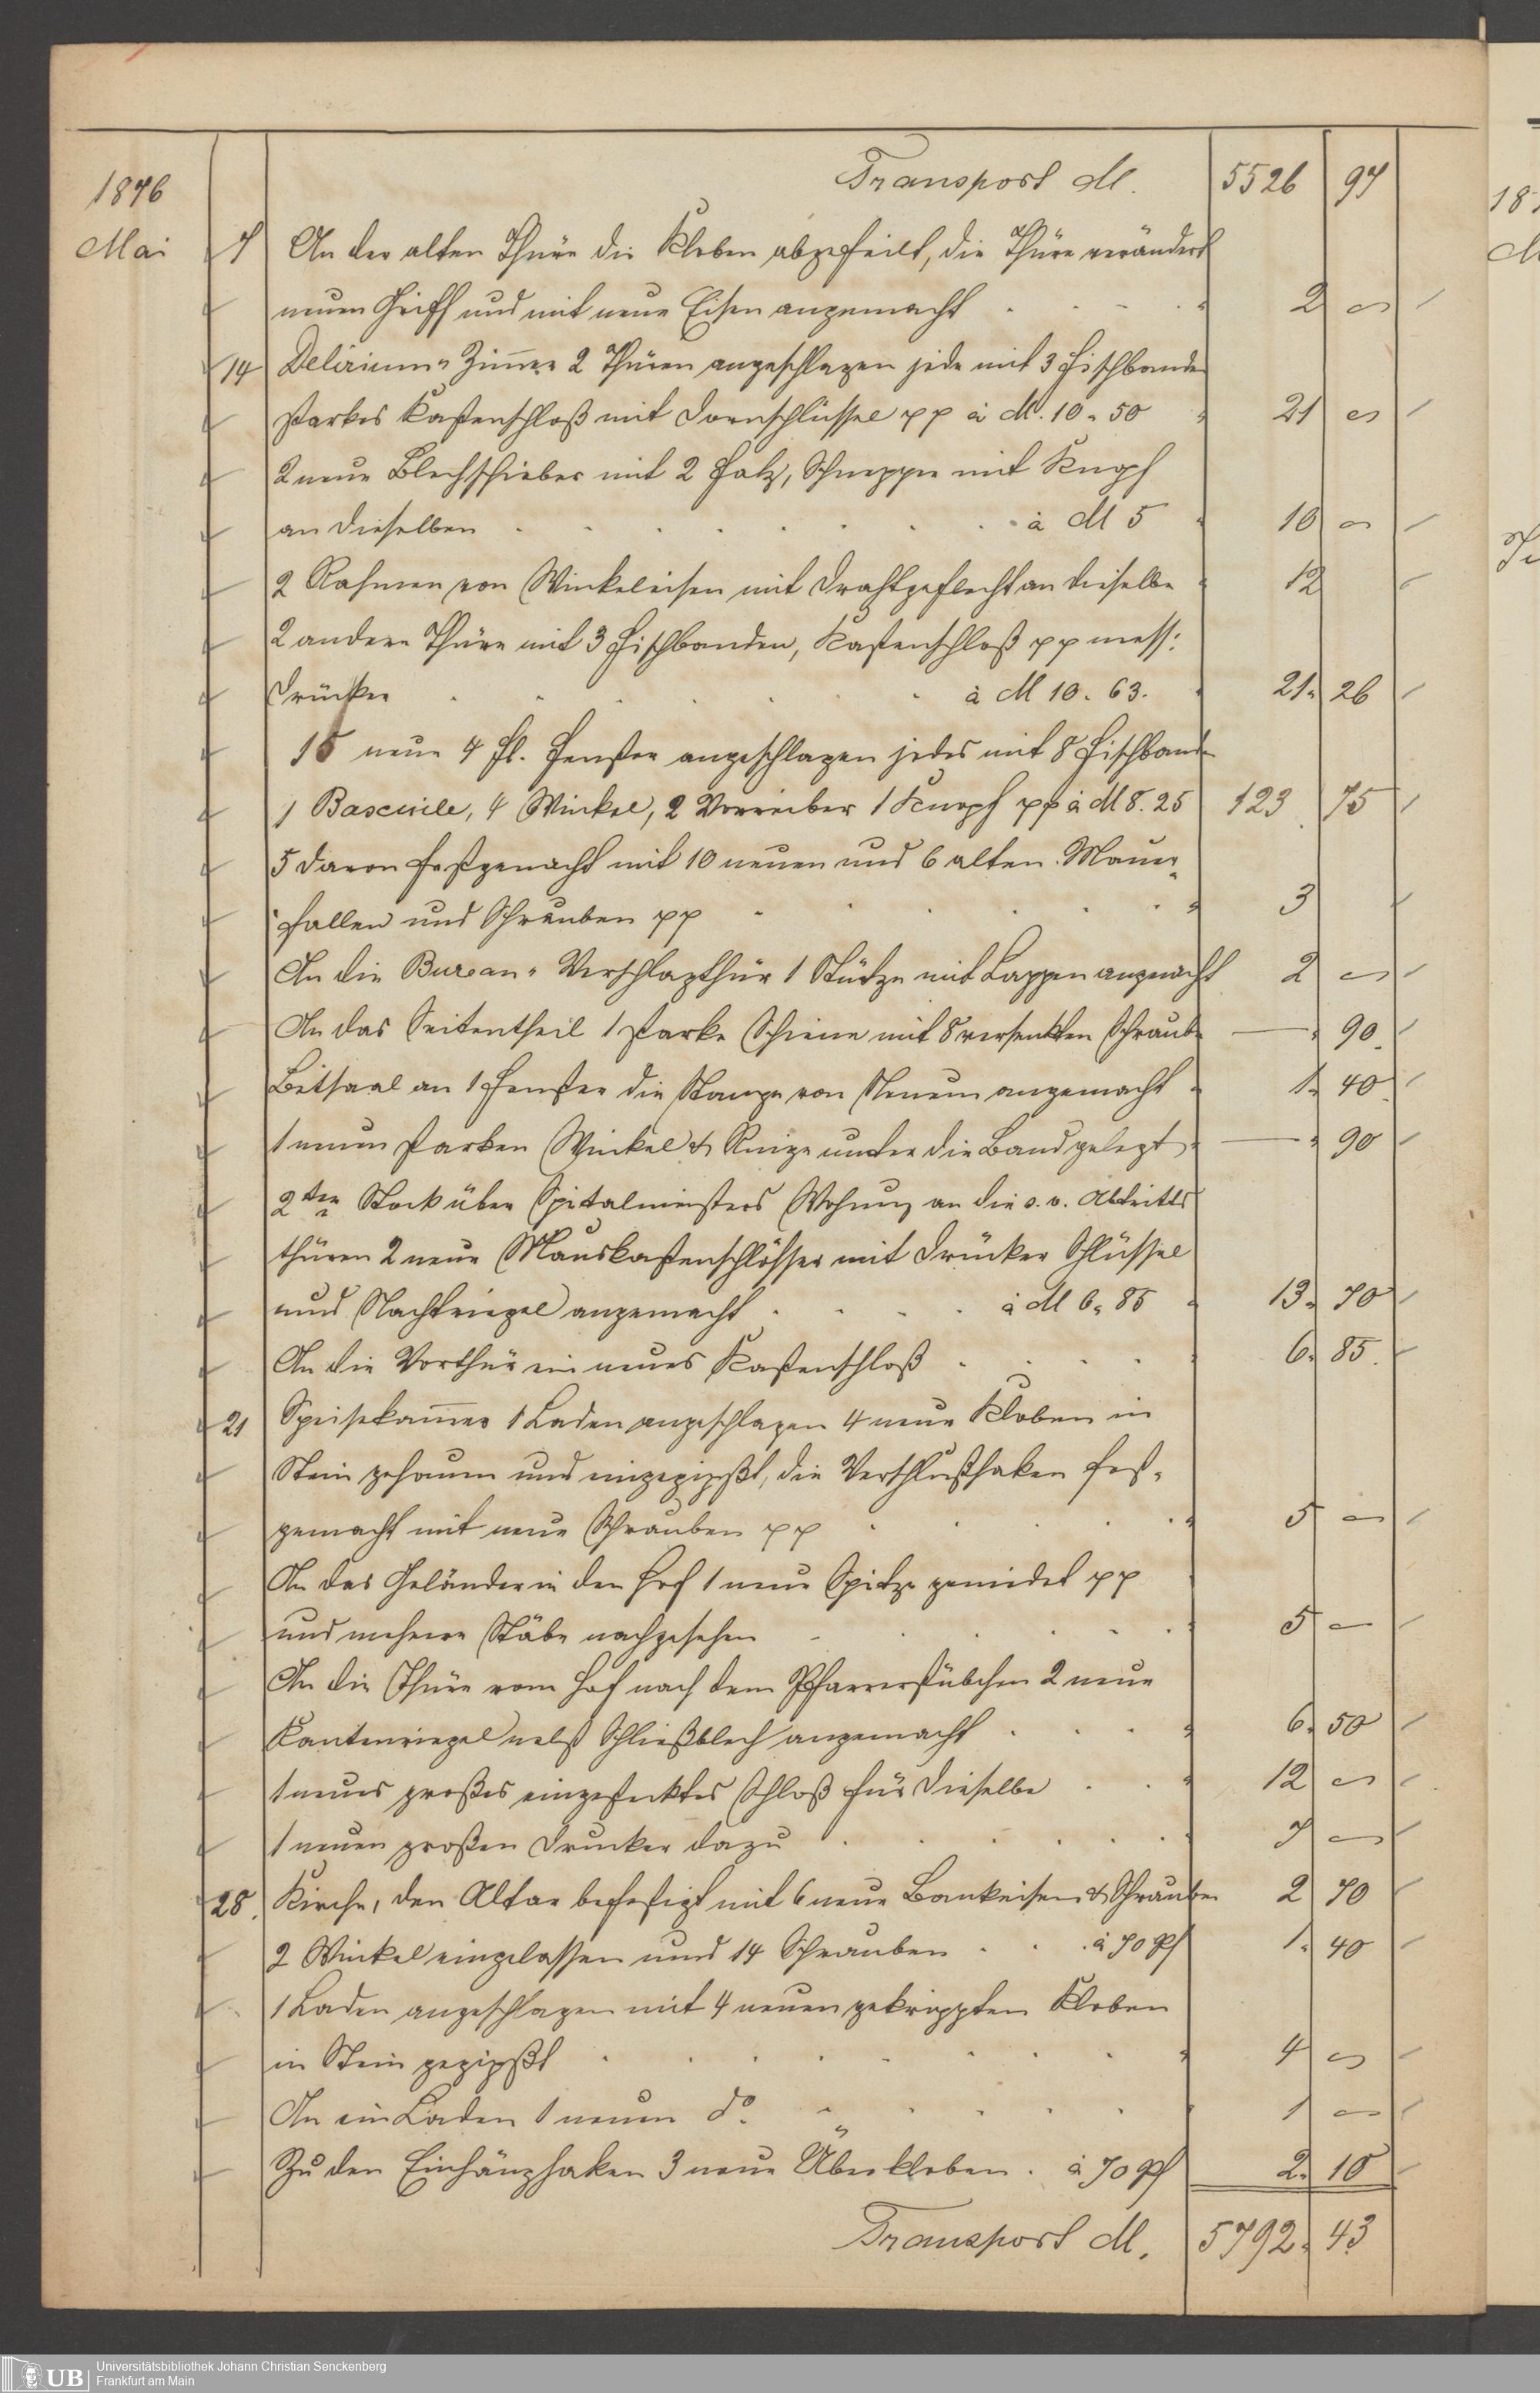 Transport M. 5526 97
1876
Mai 7 An der alten Thüre die Kloben abgefeilt, die Thüre verändert
neuen Griff und mit neue Eisen angemacht . . . . " 2 —
14 Delirium-Zim̅er 2 Thüren angeschlagen jede mit 3 Fischbande
starkes Kastenschloß mit Dornschlüssel pp à M. 10 " 50 " 21 —
2 neue Blechschieber mit 2 Falz, Schnepper mit Knopf
an dieselben . . . . . . . à M 5 " 10 —
2 Rahmen von Winkeleisen mit Drahtgeflecht an dieselbe " 12
2 andere Thüre mit 3 Fischbanden, Kastenschloß pp mess:
Drücker . . . . . . à M 10. 63. " 21. 26
15 neue 4 fl. Fenster angeschlagen jedes mit 8 Fischband
1 Bascuile, 4 Winkel, 2 Vorreiber 1 Knopf pp à M 8. 25 123 75
5 davon festgemacht mit 10 neuen und 6 alten Mauer-
fallen und Schrauben pp . . . . . . " 3
An die Bureau-Verschlagthür 1 Stütze mit Lappen angemacht 2 —
An das Seitentheil 1 starke Schiene mit 8 versenkten Schraube — " 90.
Betsaal an 1 Fenster die Stange von Neuem angemacht " 1. 40.
1 neuen starken Winkel & Ringe unter die Band gelegt " — " 90
2ter Stock über Spitalmeisters Wohnung an die s. v. Abtritts
thüren 2 neue Mauskastenschlösser mit Drücker Schlüssel
und Nachtriegel angemacht . . . . à M 6. 85 " 13. 70
An die Vorthür ein neues Kastenschloß . . . . 6. 85.
21 Speisekam̅er 1 Laden angeschlagen 4 neue Kloben in
Stein gehauen und eingegipßt, die Verschlußhaken fest-
gemacht mit neue Schrauben pp . . . . . " 5 —
An das Geländer in den Hof 1 neue Spitze genietet pp
und mehrere Stäbe nachgesehen . . . . . . 5 —
An die Thüre vom Hof nach dem Pfarrerstübchen 2 neue
Kantenriegel nebst Schließblech angemacht . . . " 6. 50
1 neues großes eingestecktes Schloß für dieselbe . . " 12 —
1 neuen großen Drücker dazu . . . . . . 7 —
28. Kirche, den Altar befestigt mit 6 neue Bankeisen & Schrauben 2 70
2 Winkel eingelassen und 14 Schrauben . . . à 70 Pf 1. 40
1 Laden angeschlagen mit 4 neuen gekröppten Kloben
in Stein gegipßt . . . . . . . . " 4 —
An ein Laden 1 neuen do. . . . . . 1 —
Zu den Einhänghaken 3 neue Überkloben . à 70 Pf 2. 10
Transport M. 5792. 43
UB Universitätsbibliothek Johann Christian Senckenberg
Frankfurt am Main